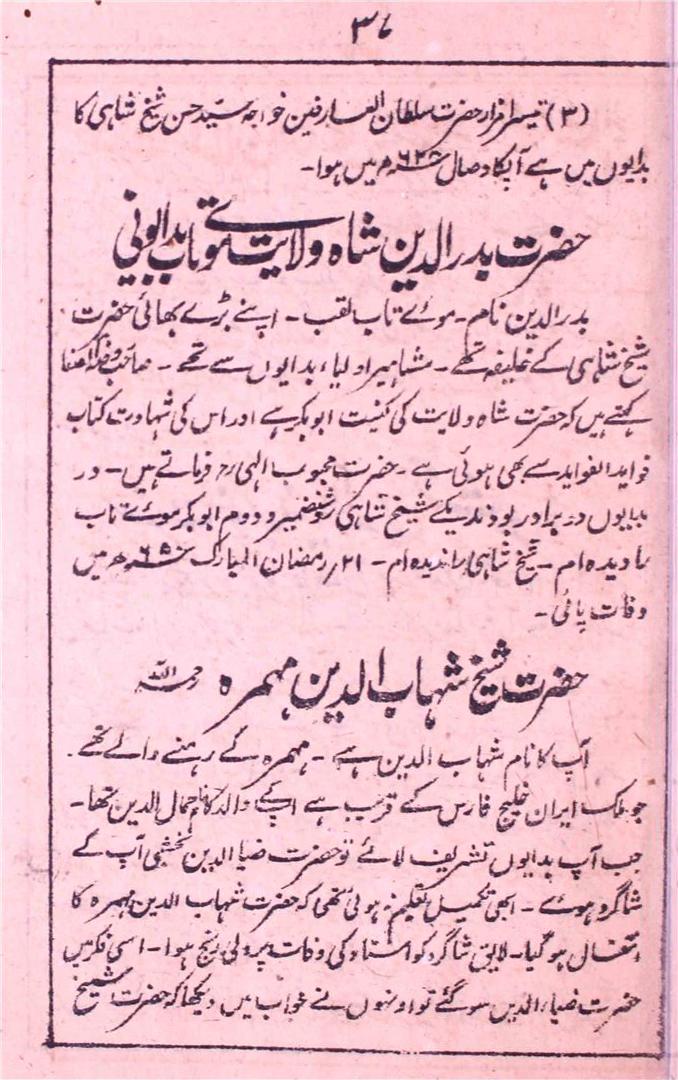 ۳۷
(۳) تیسرا مزار حضرت سلطان العارفین خواجہ سید حسن شیخ شاہی کا
بدایوں میں ہے آپکا وصال میں ہوا۔
حضرت بدر الدین شاہ ولایت موئے تاب بدایونی
بدر الدین نام۔ موئے تاب لقب۔ اپنے بڑے بھائی حضرت
شیخ شاہی کے خلیفہ تھے۔ مشاہیر اولیاء بدایوں سے تھے۔ صاحب
کہتے ہیں کہ حضرت شاہ ولایت کی کنیت ابوبکر ہے اور اس کی شہادت کتاب
فواید الفواید سے بھی ہوئی ہے۔ حضرت محبوب الٰہی رح فرماتے ہیں۔ در
بدایوں دو برادر بودند یکے شیخ شاہی روشنضمیر و دوم ابوبکر موئے تاب
را دیدہ ام۔ شیخ شاہی را ندیدہ ام۔ ۲۱/ رمضان المبارک ھ میں
وفات پائی۔
حضرت شیخ شہاب الدین مہمرہ رحمۃ اللہ
آپ کا نام شہاب الدین ہے۔ مہمرہ کے رہنے والے تھے۔
جو ملک ایران خلیج فارس کے قریب ہے آپکے والد کا نام جمال الدین تھا۔
جب آپ بدایوں تشریف لائے تو حضرت ضیا الدین نخشبی آپ کے
شاگرد ہوئے۔ ابھی تکمیل تعلیم نہ ہوئی تھی کہ حضرت شہاب الدین مہمرہ کا
انتقال ہو گیا۔ لایق شاگرد کو استاد کی وفات پر دلی رنج ہوا۔ اسی فکر میں
حضرت ضیاء الدین سو گئے تو اونہوں نے خواب میں دیکھا کہ حضرت شیخ